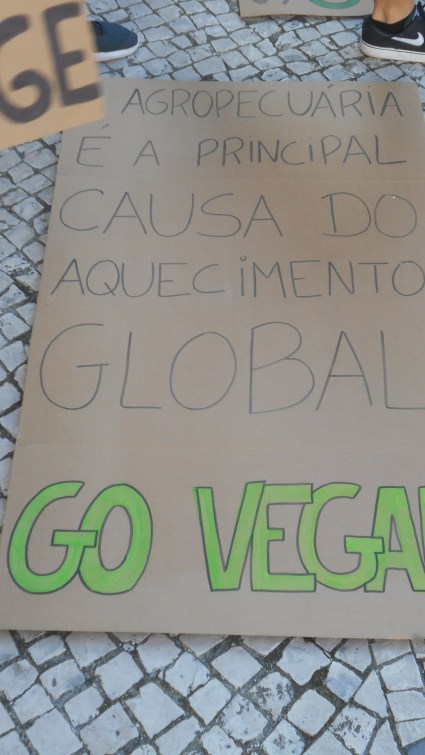 GE
AGROPECUÁRIA
É A PRINCIPAL
CAUSA DO
AQUECIMENTO
GLOBAL
GO VEGAN